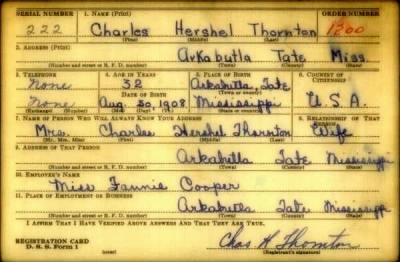 SERIAL NUMBER 1. NAME (Print) ORDER NUMBER
222 Charles Hershel Thornton 1300
(First) (Middle) (Last)
2. ADDRESS (Print)
Arkabutla Tate Miss.
(Number and street or R. F. D. number) (Town) (County) (State)
3. TELEPHONE 4. AGE IN YEARS 5. PLACE OF BIRTH 6. COUNTRY OF CITIZENSHIP
None 32 Arkabutla, Tate
DATE OF BIRTH (Town or county)
None Aug. 30, 1908 Mississippi U.S.A.
(Exchange) (Number) (Mo.) (Day) (Yr.) (State or country)
7. NAME OF PERSON WHO WILL ALWAYS KNOW YOUR ADDRESS 8. RELATIONSHIP OF THAT PERSON
Mrs. Charles Hershel Thornton Wife
(Mr., Mrs., Miss) (First) (Middle) (Last)
9. ADDRESS OF THAT PERSON
Arkabutla Tate Mississippi
(Number and street or R. F. D. number) (Town) (County) (State)
10. EMPLOYER'S NAME
Miss Fannie Cooper
11. PLACE OF EMPLOYMENT OR BUSINESS
Arkabutla Tate Mississippi
(Number and street or R. F. D. number) (Town) (County) (State)
I AFFIRM THAT I HAVE VERIFIED ABOVE ANSWERS AND THAT THEY ARE TRUE.
REGISTRATION CARD
D. S. S. Form 1 Chas H Thornton
(Registrant's signature)